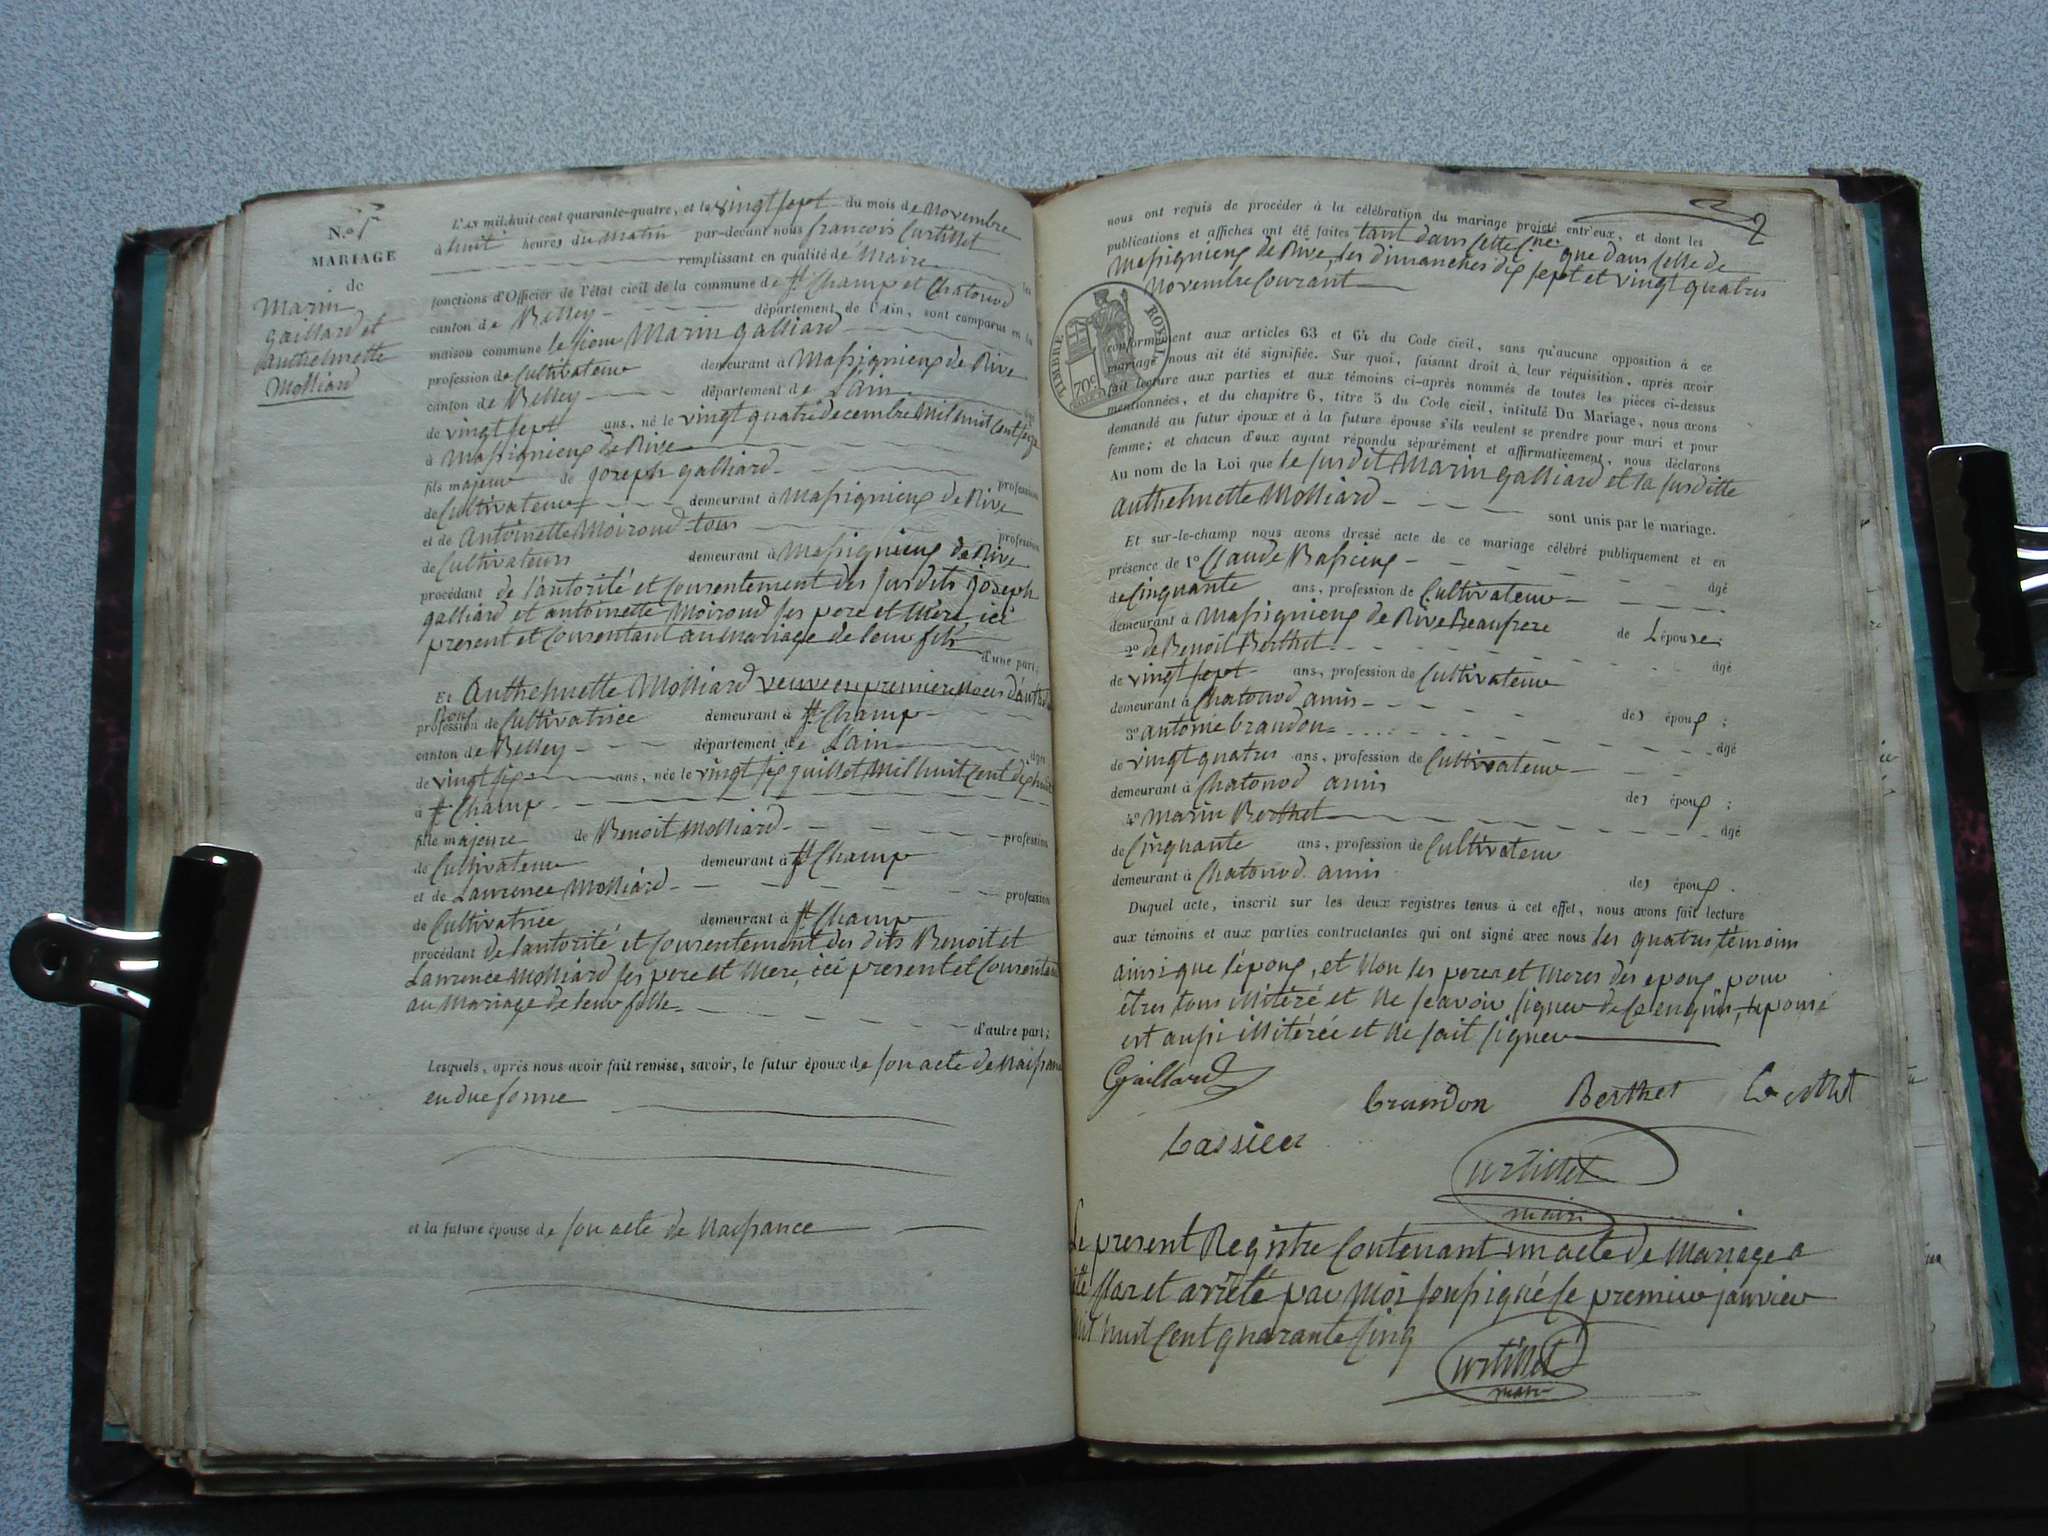 N.o 1
MARIAGE
de
Marin
gaillard et
anthelmette
Molliard
L'AN mil huit cent quarante-quatre, et le vingt sept du mois de Novembre
à huit heures du matin par-devant nous francois Curtillet
remplissant en qualité de Maire les
fonctions d'Officier de l'état civil de la commune de St Champ et Chatonod
canton de Belley département de l'Ain, sont comparus en la
maison commune le sieur Marin galliard
profession de Cultivateur demeurant à Massignieux de Rive
canton de Belley département de L'ain âgé
de vingt sept ans, né le vingt quatre decembre mil huit cent seize
à Massignieux de Rive
fils majeur de joseph galliard profession
de Cultivateur demeurant à Massignieux de Rive
et de Antoinette Moiroud tous profession
de Cultivateurs demeurant à Massignieux de Rive
procédant de l'autorité et consentement des susdits joseph
galliard et antoinette Moiroud ses pere et Mère, ici
present et consentant au mariage de leur fils
d'une part;
Et Anthelmette Molliard veuve en premiere noces d'
profession de Cultivatrice demeurant à St Champ
canton de Belley département de L'ain âgée
de vingt six ans, née le vingt six juillet mil huit cent dix huit
à St Champ
fille majeure de Benoit Molliard profession
de Cultivateur demeurant à St Champ
et de Laurence Molliard profession
de Cultivatrice demeurant à St Champ
procédant de l'autorité et consentement des dits Benoit et
Laurence Molliard ses pere et Mere, ici present et Consentant
au Mariage de leur fille
d'autre part;
Lesquels, après nous avoir fait remise, savoir, le futur époux de son acte de Naissance
en due forme
et la future épouse de son acte de Naissance
nous ont requis de procéder à la célébration du mariage projeté entr'eux, et dont les
publications et affiches ont été faites tant dans cette Cne que dans celle de
Massignieux de Rive, les dimanches dix sept et vingt quatre
Novembre Courant
TIMBRE ROYAL
70c
conformément aux articles 63 et 64 du Code civil, sans qu'aucune opposition à ce
mariage nous ait été signifiée. Sur quoi, faisant droit à leur réquisition, après avoir
fait lecture aux parties et aux témoins ci-après nommés de toutes les pièces ci-dessus
mentionnées, et du chapitre 6, titre 5 du Code civil, intitulé Du Mariage, nous avons
demandé au futur époux et à la future épouse s'ils veulent se prendre pour mari et pour
femme; et chacun d'eux ayant répondu séparément et affirmativement, nous déclarons
Au nom de la Loi que le susdit Marin galliard et la susditte
Anthelmette Molliard sont unis par le mariage.
Et sur-le-champ nous avons dressé acte de ce mariage célébré publiquement et en
présence de 1o Claude Bassieux âgé
de Cinquante ans, profession de Cultivateur
demeurant à Massignieux de Rive Beaufrere de Lépouse;
2o de Benoit Berthet âgé
de vingt sept ans, profession de Cultivateur
demeurant à Chatonod amis des époux;
3o antoine brandon âgé
de vingt quatre ans, profession de Cultivateur
demeurant à Chatonod amis des époux;
4o Marin Berthet âgé
de Cinquante ans, profession de Cultivateur
demeurant à Chatonod amis des époux.
Duquel acte, inscrit sur les deux registres tenus à cet effet, nous avons fait lecture
aux témoins et aux parties contractantes qui ont signé avec nous les quatres témoins
ainsi que l'époux, et Non les peres et Meres des epoux pour
êtres tous illitéré et Ne scavoir signer de ce enquis, l'épouse
est aussi illitérée et Ne sait signer
Gaillard
brandon Berthet
bassieu
Curtillet
maire
Le present Registre Contenant un acte de Mariage a
été Clos et arrêté par Moi soussigné le premier janvier
Mil huit Cent quarante Cinq
Curtillet
maire